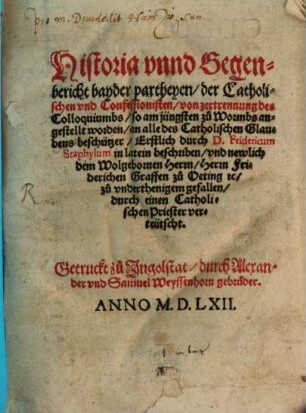 Historia vnnd Gegen-
bericht bayder partheyen/ der Catholi-
schen vnd Confessionisten/ von zertrennung des
Colloquiumbs/ so am jüngsten zů Wormbs an-
gestellt worden/ an alle des Catholischen Glau-
bens beschützer/ Erstlich durch D. Fridericum
Staphylum in latein beschriben/ vnd newlich
dem Wolgebornen Herrn/ Herrn Fri-
derichen Graffen zů Oeting ꝛc/
zů vnderthenigem gefallen/
durch einen Catholi-
schen Priester ver-
teütscht.
Getruckt zů Ingolstat/ durch Alexan-
der vnd Samuel Weyssenhorn gebrüder.
ANNO M. D. LXII.